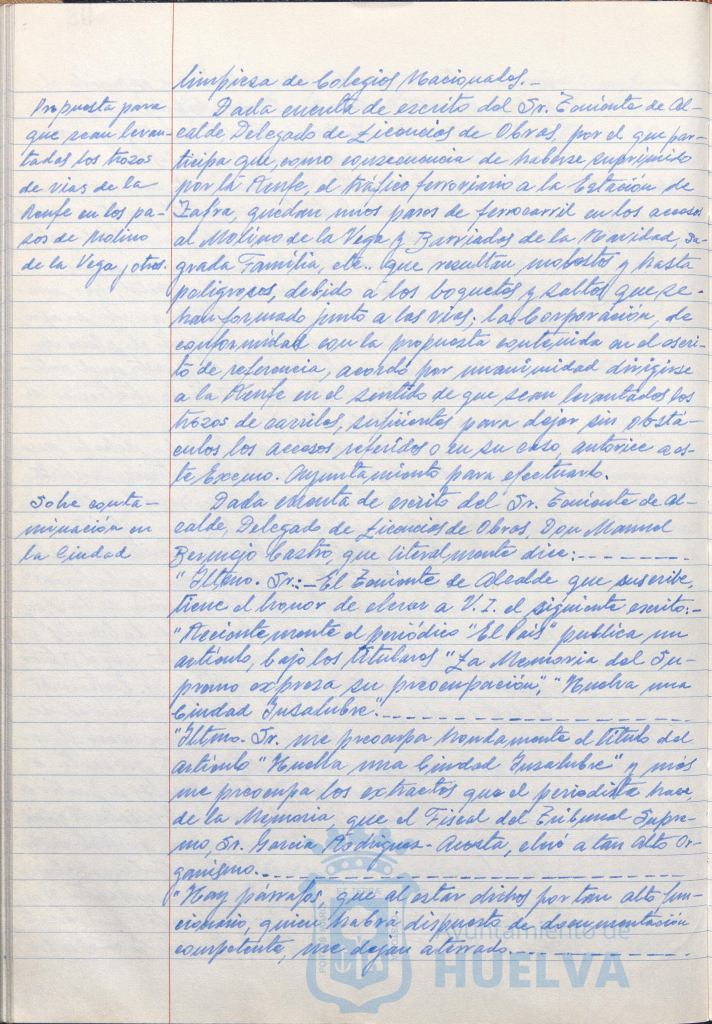 limpieza de Colegios Nacionales.-
Propuesta para
que sean levan-
tados los trozos
de vias de la
Renfe en los pa-
sos de Molino
de la Vega y otros.
Dada cuenta de escrito del Sr. Teniente de Al-
calde Delegado de Licencias de Obras, por el que par-
ticipa que, como consecuencia de haberse suprimido
por la Renfe, el tráfico ferroviario a la Estación de
Zafra, quedan unos pasos de ferrocarril en los accesos
al Molino de la Vega y Barriadas de la Navidad, Sa-
grada Familia, etc.. que resultan molestos y hasta
peligrosos, debido a los boquetes y saltos que se-
han formado junto a las vias; la Corporación, de
conformidad con la propuesta contenida en el escri-
to de referencia, acordó por unanimidad dirigirse
a la Renfe en el sentido de que sean levantados los
trozos de carriles, suficientes para dejar sin obstá-
culos los accesos referidos o en su caso, autorice a es-
te Excmo. Ayuntamiento para efectuarlo.
Sobre conta-
minación en
la Ciudad
Dada cuenta de escrito del Sr. Teniente de Al-
calde, Delegado de Licencias de Obras, Don Manuel
Bermejo Castro, que literalmente dice:
"Iltmo. Sr.:-El Teniente de Alcalde que suscribe,
tiene el honor de elevar a V.I. el siguiente escrito:-
"Recientemente el periódico "El País" publica un
artículo, bajo los titulares "La Memoria del Su-
premo expresa su preocupación", "Huelva una
Ciudad Insalubre".
"Iltmo. Sr. me preocupa hondamente el título del
artículo "Huelva una Ciudad Insalubre" y más
me preocupa los extractos que el periodista hace,
de la Memoria, que el Fiscal del Tribunal Supre-
mo, Sr. García Rodríguez-Acosta, elevó a tan Alto Or-
ganismo.
"Hay párrafos, que al estar dichos por tan alto fun-
cionario, quien habrá dispuesto de documentación
competente, me dejan aterrado.
Ayuntamiento de
HUELVA